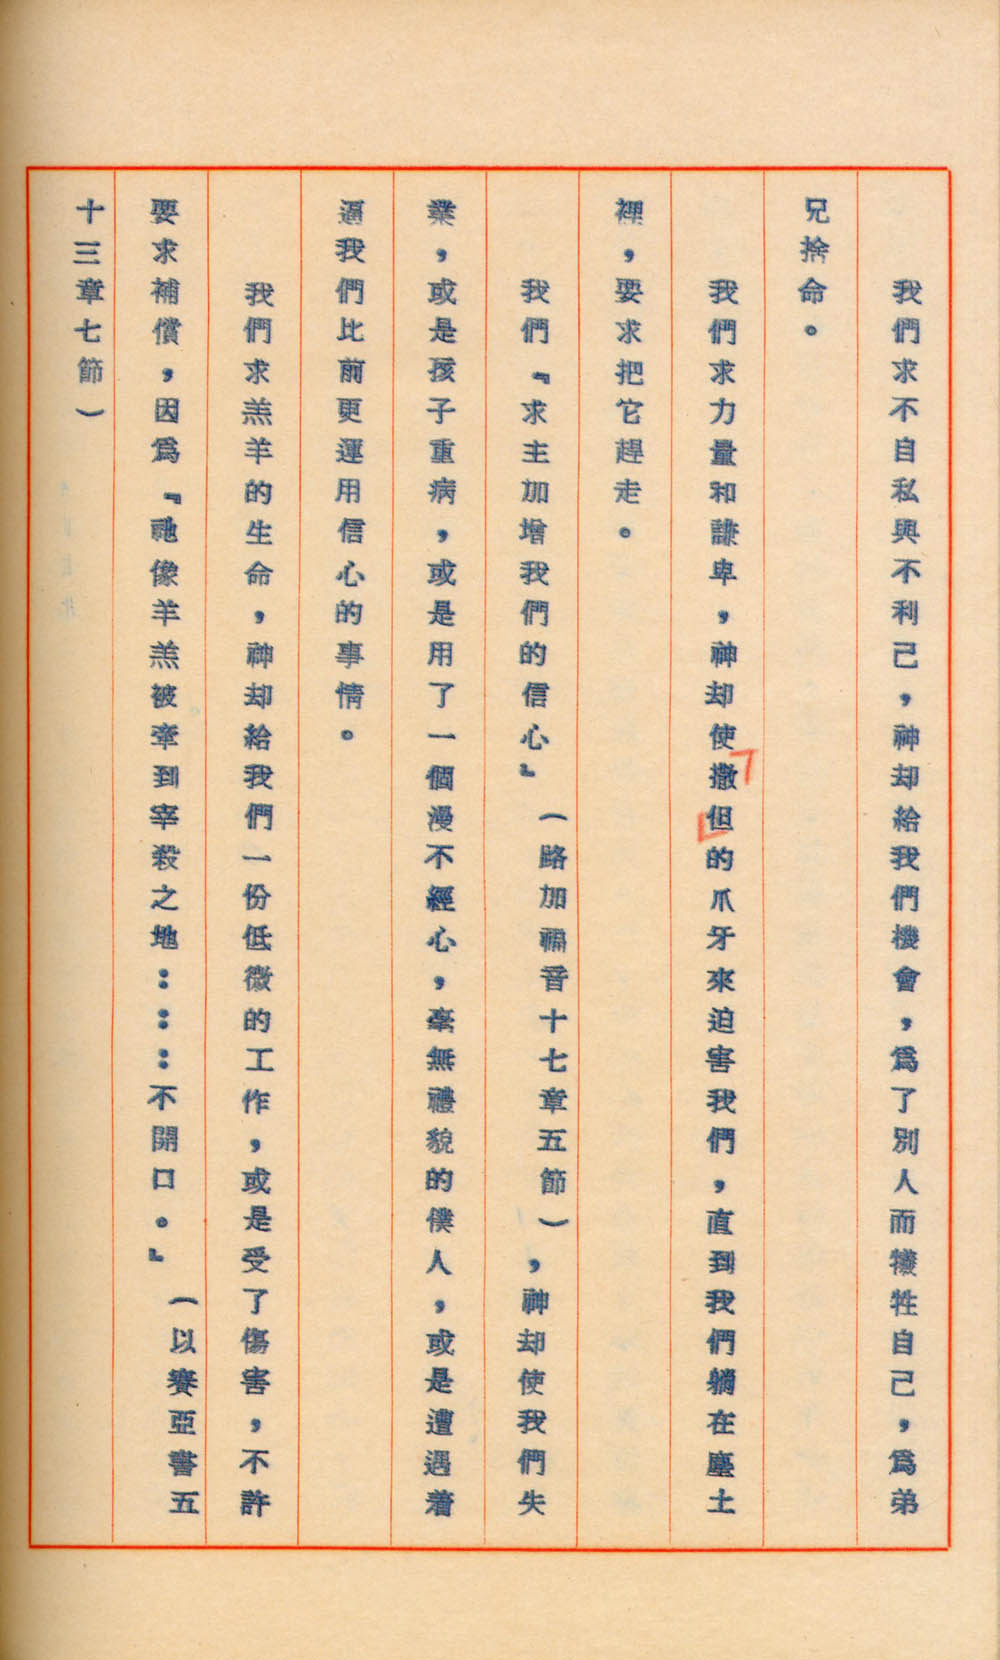 我們求不自私與不利己，神却給我們機會，爲了別人而犧牲自己，爲弟
兄捨命。
我們求力量和謙卑，神却使撒但的爪牙來迫害我們，直到我們躺在塵土
裡，要求把它趕走。
我們『求主加增我們的信心』（路加福音十七章五節），神却使我們失
業，或是孩子重病，或是用了一個漫不經心，毫無禮貌的僕人，或是遭遇着
逼我們比前更運用信心的事情。
我們求羔羊的生命，神却給我們一份低微的工作，或是受了傷害，不許
要求補償，因爲『祂像羊羔被牽到宰殺之地：：：不開口。』（以賽亞書五
十三章七節）